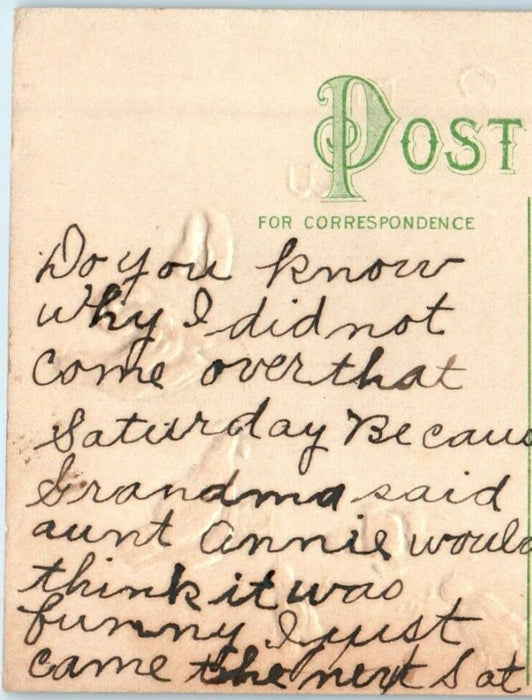 POST
FOR CORRESPONDENCE
Do you know
why I did not
come over that
Saturday Becaus
Grandma said
aunt Annie would
think it was
funny I just
came the next Sat